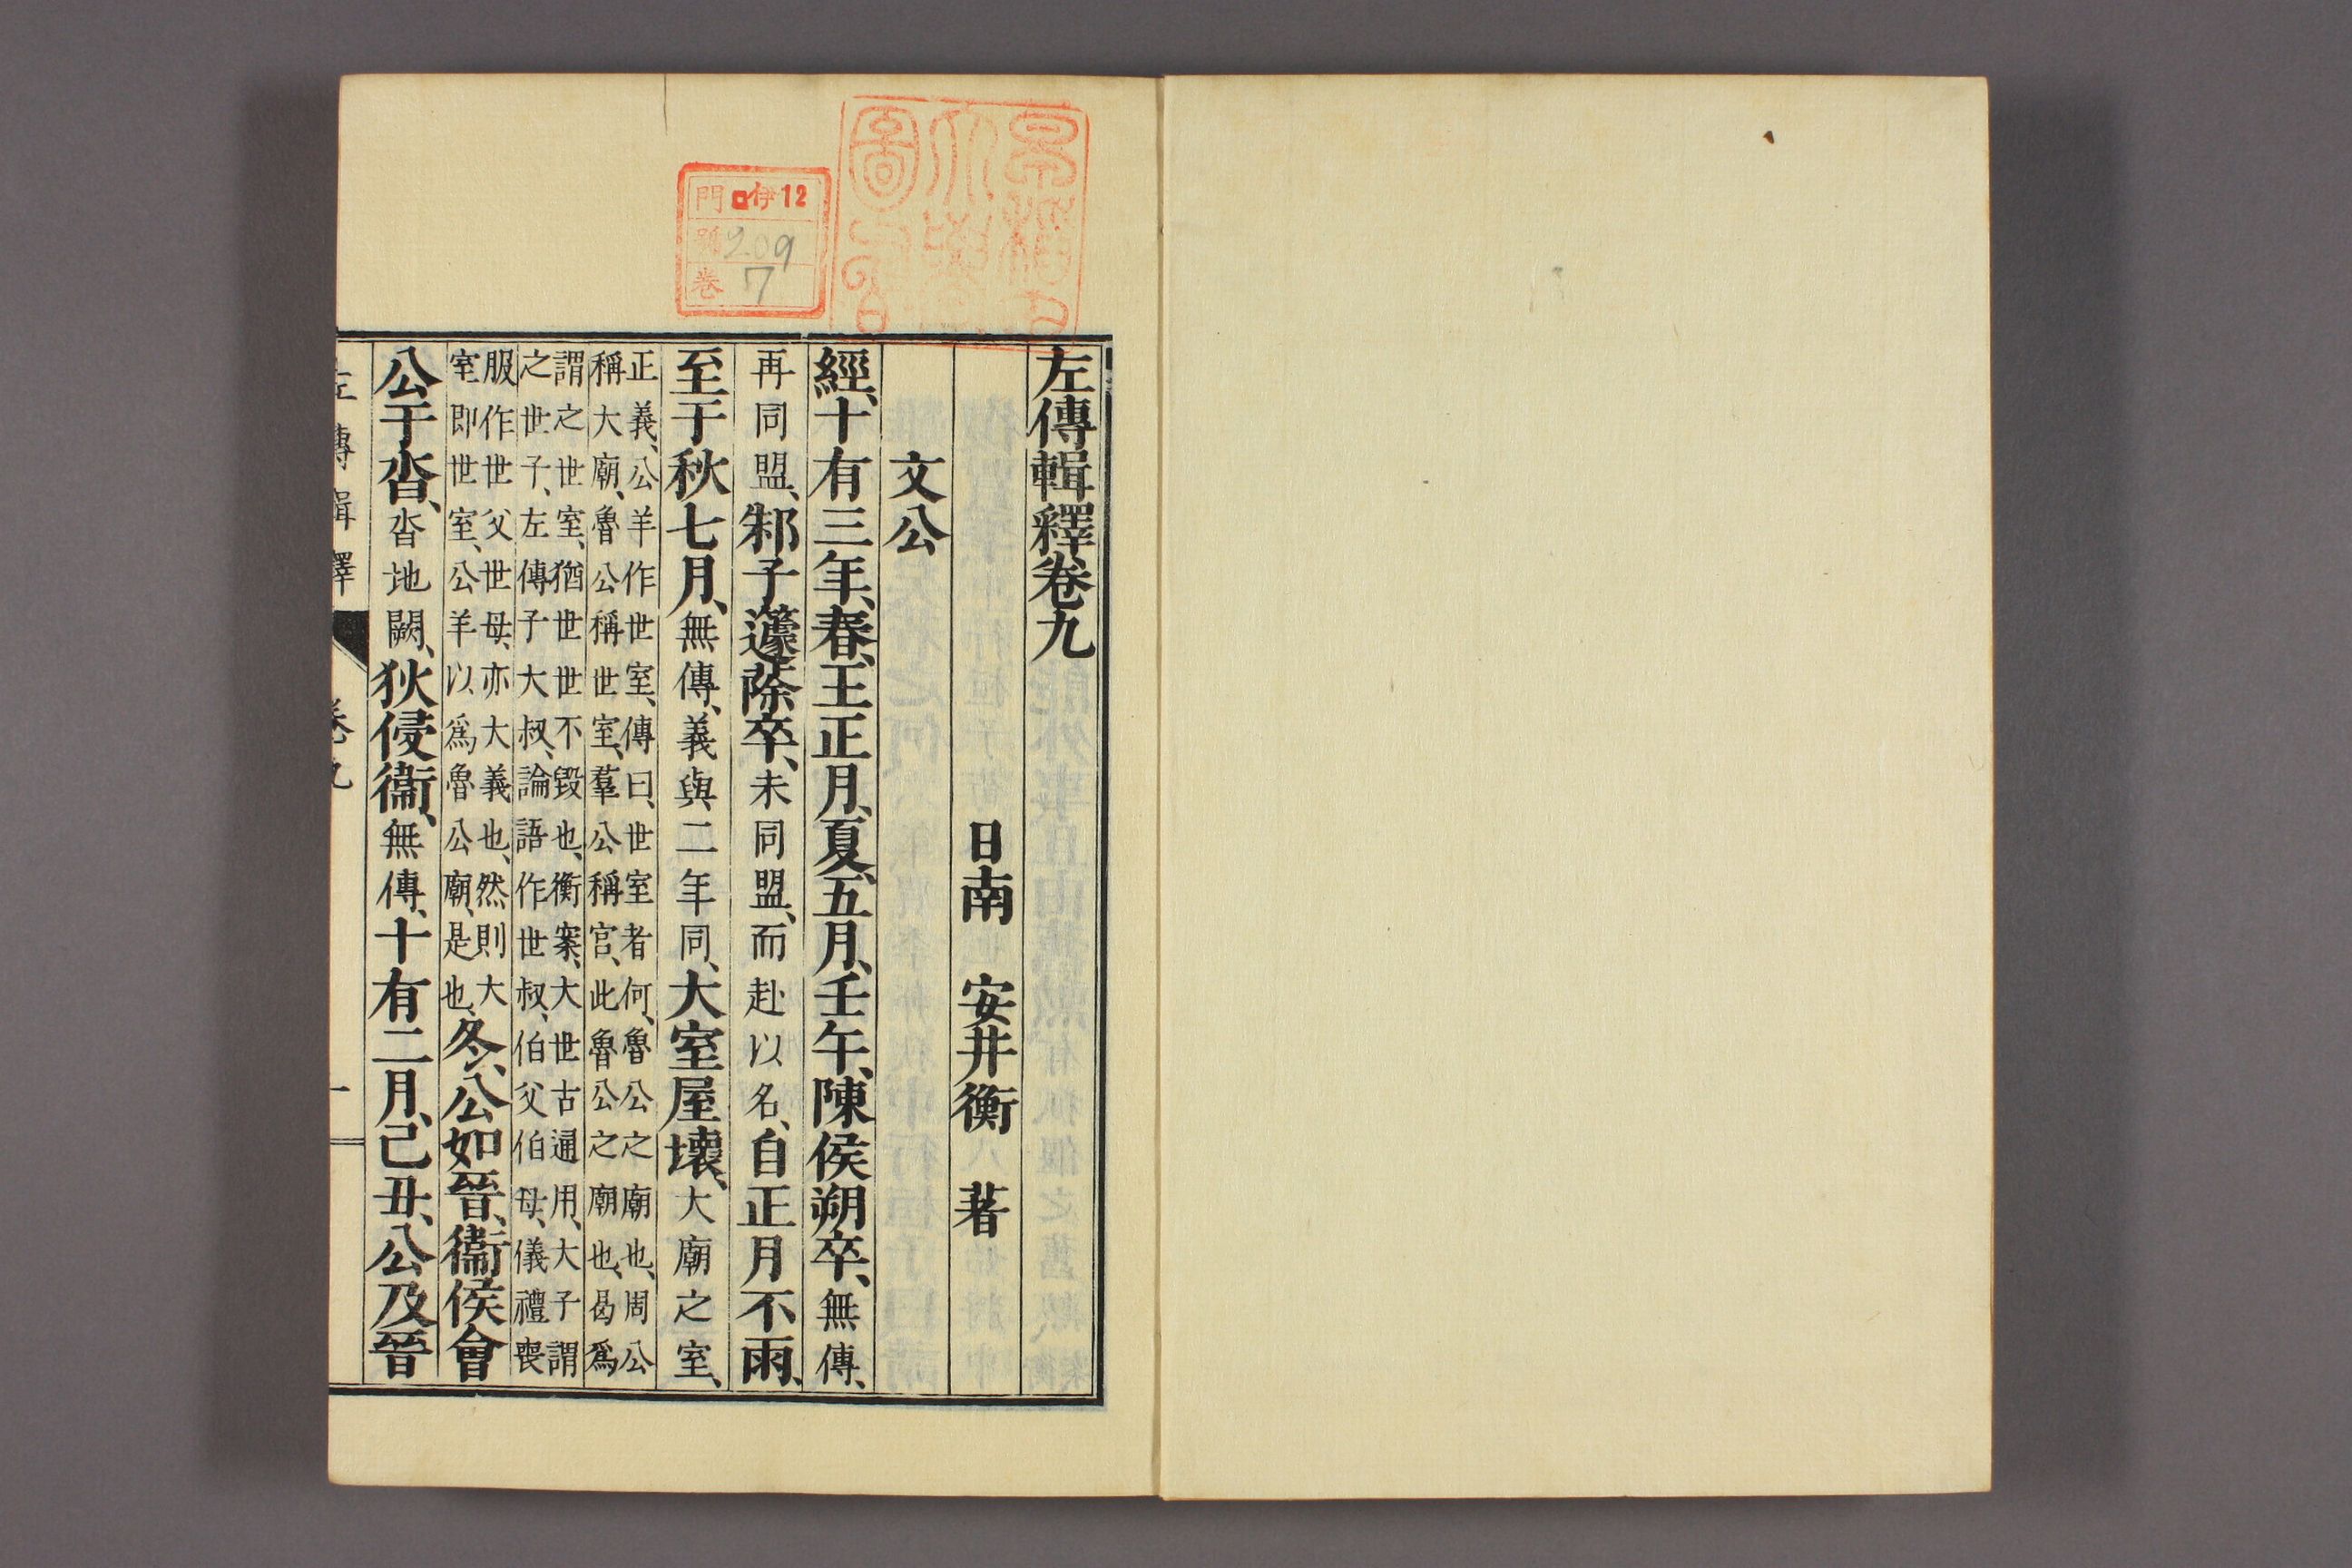 左傳輯釋卷九
日南 安井衡 著
文公
經、十有三年、春、王正月、夏、五月、壬午、陳侯朔卒、無傳、
再同盟、邾子蘧蒢卒、未同盟、而赴以名、自正月不雨、
至于秋七月、無傳、義與二年同、大室屋壞、大廟之室、
正義、公羊作世室、傳曰、世室者何、魯公之廟也、周公
稱大廟、魯公稱世室、羣公稱宮、此魯公之廟也、曷爲
謂之世室、猶世世不毀也、衡案、大世古通用、大子謂
之世子、左傳子大叔、論語作世叔、伯父伯母、儀禮喪
服作世父世母、亦大義也、然則大
室即世室、公羊以爲魯公廟、是也、
冬、公如晉、衞侯會
公于沓、沓地闕、狄侵衞、無傳、十有二月、己丑、公及晉
左傳輯釋 卷九 一
門 伊12
號 209
卷 7